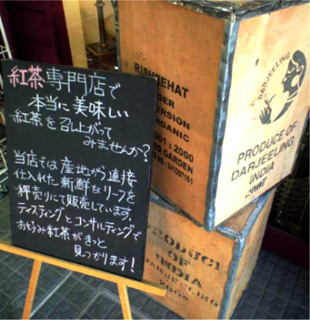 紅茶専門店で
本当に美味しい
紅茶を召上がって
みませんか?
当店では産地から直接
仕入れた新鮮なリーフを
秤売りにて販売しています。
テイスティングとコンサルティングで
お好み紅茶がきっと
見つかります!
DARJEELING
RISHEEHAT
ORGANIC
GARDEN
PRODUCE OF
DARJEELING
INDIA
PRODUCT
OF
INDIA
DARJEELING